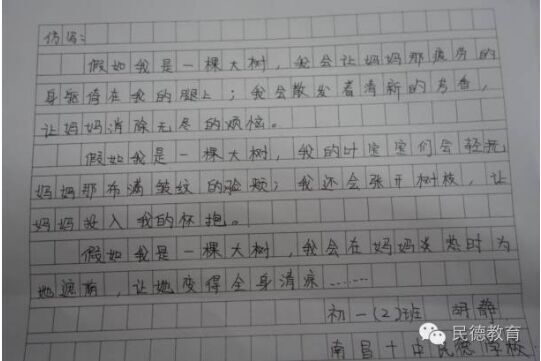 仿写：
假如我是一棵大树，我会让妈妈那疲劳的
身躯倚在我的腿上；我会散发着清新的芳香，
让妈妈消除无尽的烦恼。
假如我是一棵大树，我的叶宝宝们会轻抚
妈妈那布满皱纹的脸颊；我还会张开树枝，让
妈妈投入我的怀抱。
假如我是一棵大树，我会在妈妈炎热时为
她遮荫，让她变得全身清凉……
初一(2)班 胡静
南昌十中民德学校
民德教育